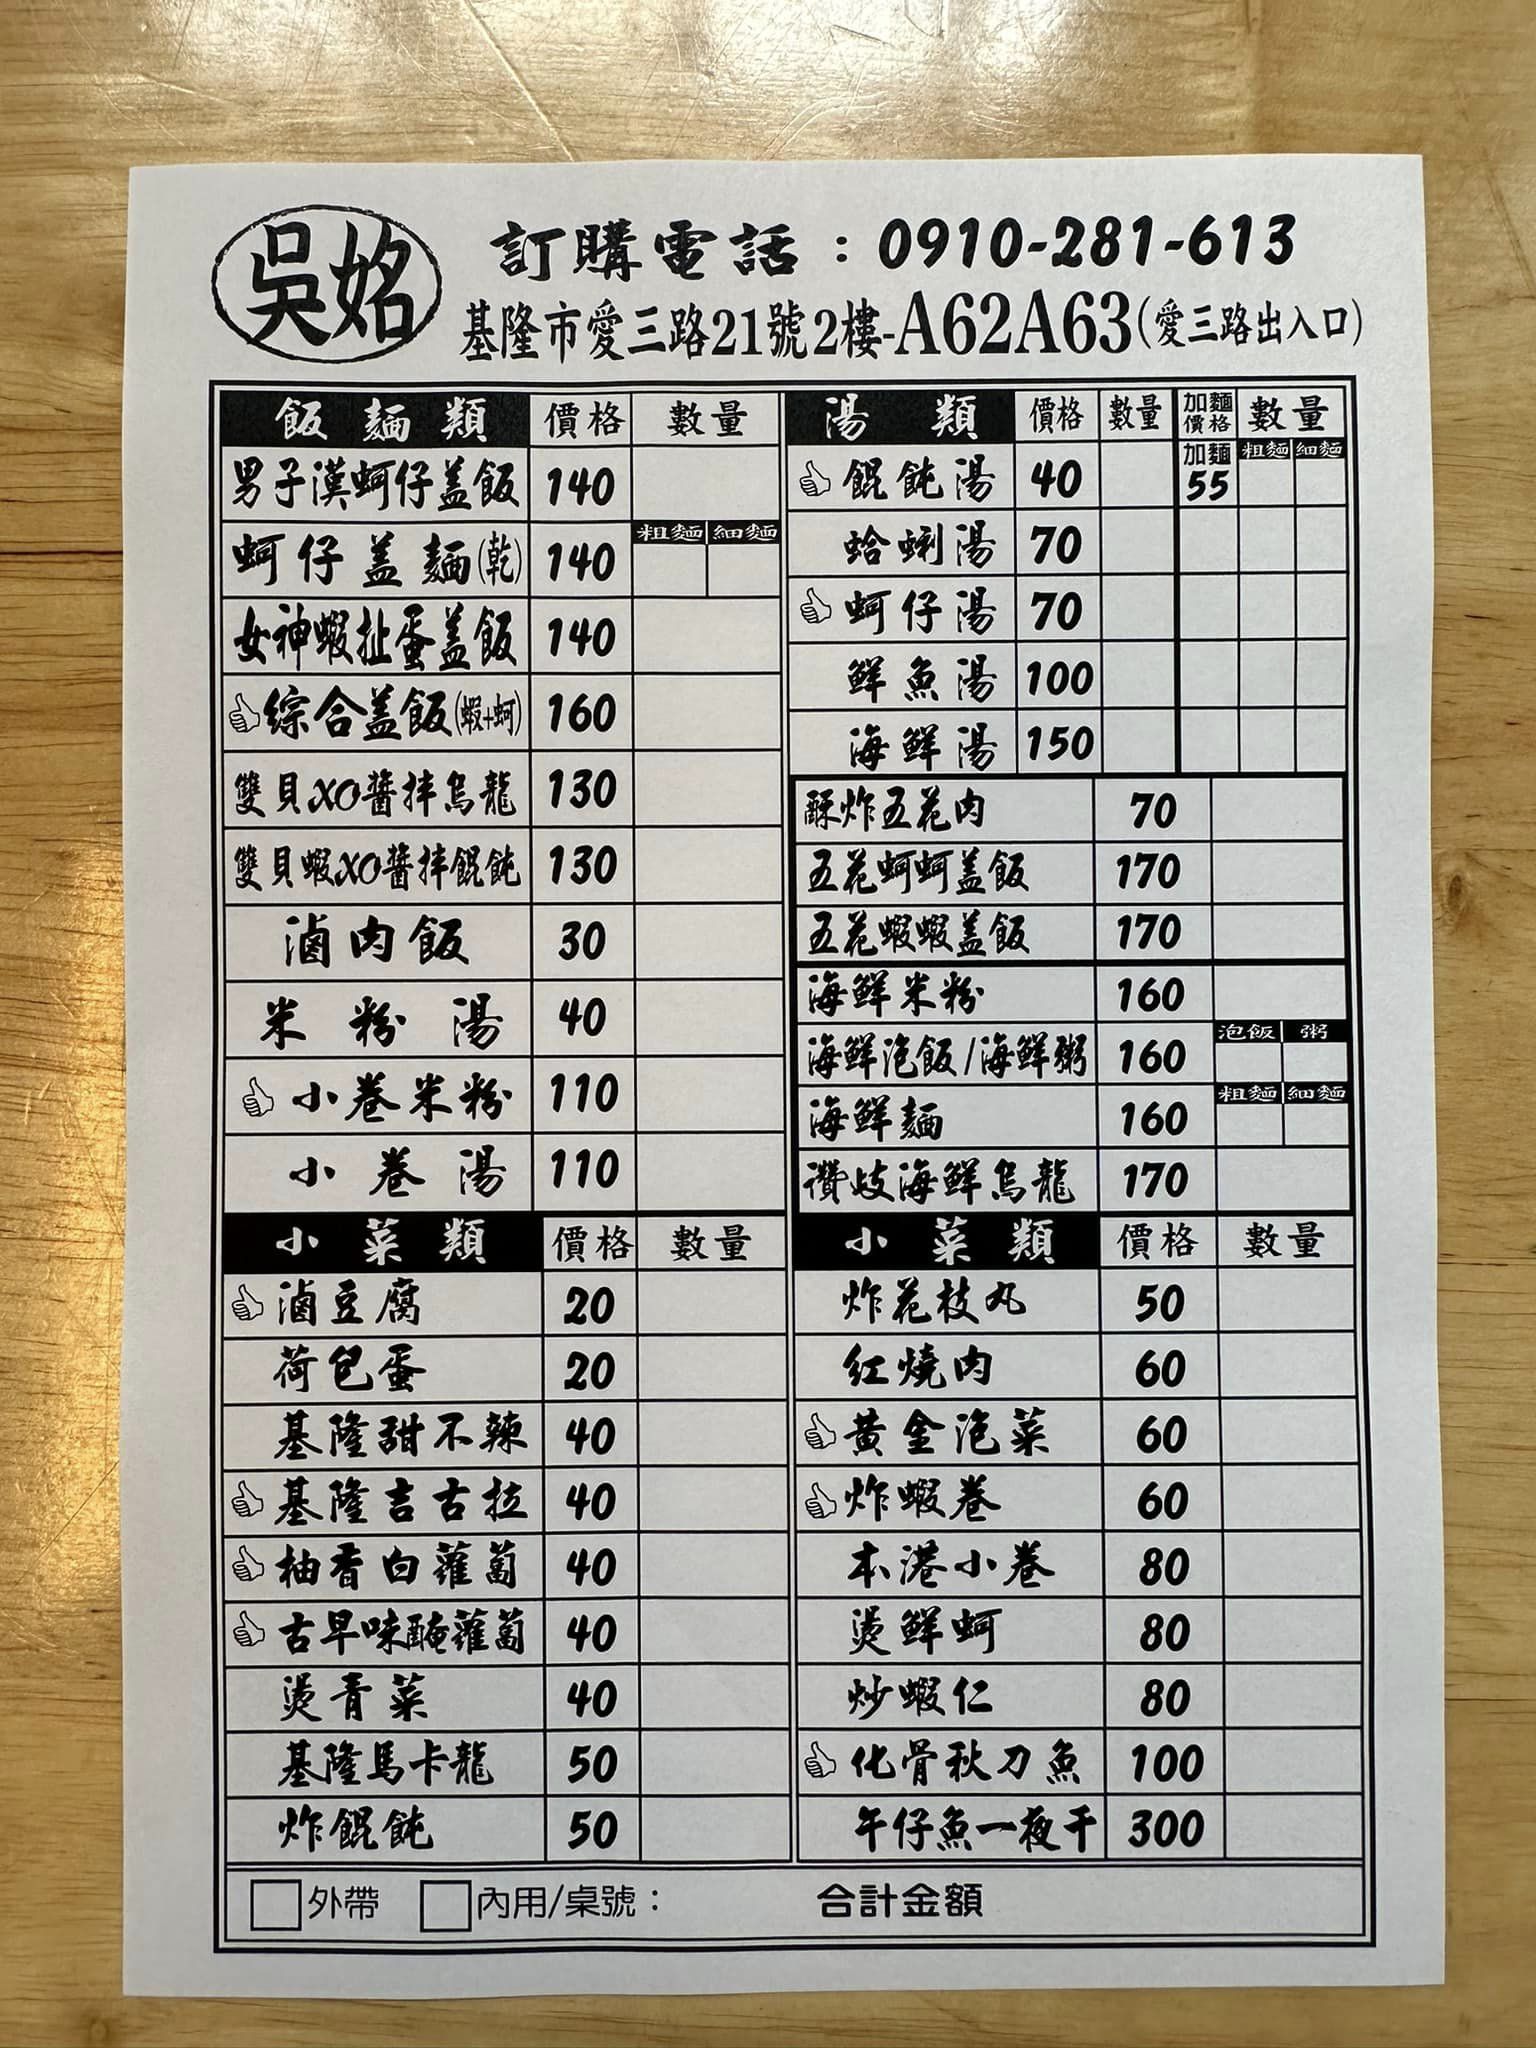 吳姳
訂購電話：0910-281-613
基隆市愛三路21號2樓-A62A63(愛三路出入口)
飯麵類 價格 數量
男子漢蚵仔蓋飯 140
蚵仔蓋麵(乾) 140 粗麵 細麵
女神蝦扯蛋蓋飯 140
綜合蓋飯(蝦+蚵) 160
雙貝XO醬拌烏龍 130
雙貝蝦XO醬拌餛飩 130
滷肉飯 30
米粉湯 40
小卷米粉 110
小卷湯 110
湯類 價格 數量 加麵價格 數量
餛飩湯 40 加麵55 粗麵 細麵
蛤蜊湯 70
蚵仔湯 70
鮮魚湯 100
海鮮湯 150
酥炸五花肉 70
五花蚵蚵蓋飯 170
五花蝦蝦蓋飯 170
海鮮米粉 160
海鮮泡飯/海鮮粥 160 泡飯 粥
海鮮麵 160 粗麵 細麵
讚岐海鮮烏龍 170
小菜類 價格 數量
滷豆腐 20
荷包蛋 20
基隆甜不辣 40
基隆吉古拉 40
柚香白蘿蔔 40
古早味醃蘿蔔 40
燙青菜 40
基隆馬卡龍 50
炸餛飩 50
小菜類 價格 數量
炸花枝丸 50
紅燒肉 60
黃金泡菜 60
炸蝦卷 60
本港小卷 80
燙鮮蚵 80
炒蝦仁 80
化骨秋刀魚 100
午仔魚一夜干 300
外帶 內用/桌號： 合計金額